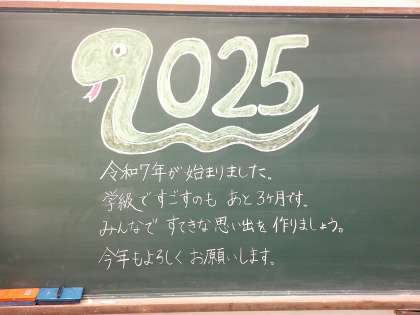 2025
令和7年が始まりました。
学級ですごすのも あと3ケ月です。
みんなで すてきな思い出を作りましょう。
今年もよろしくお願いします。